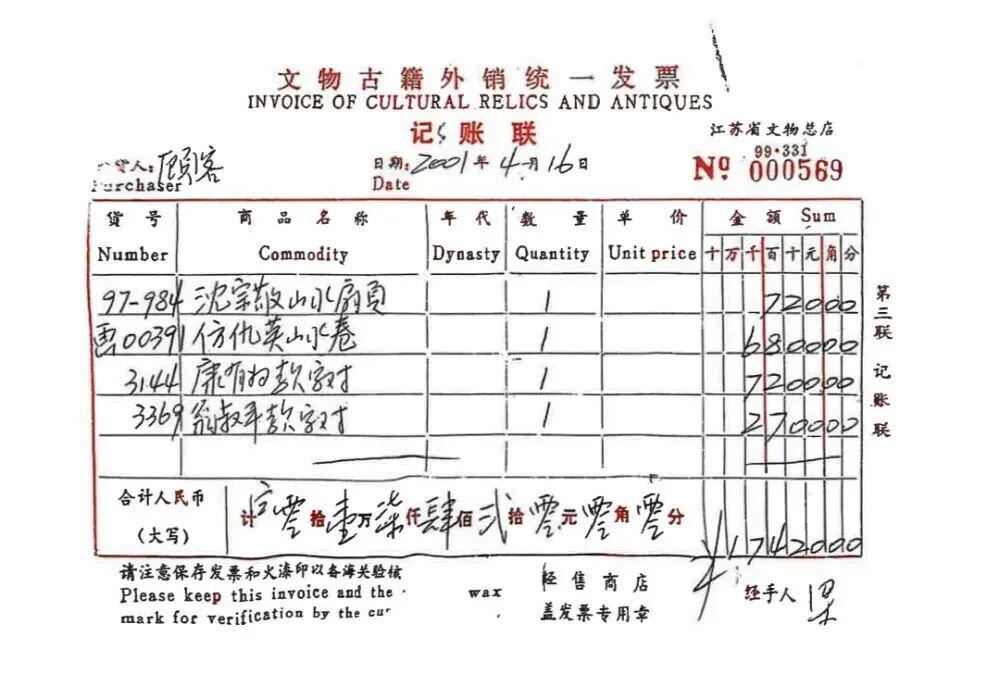 文物古籍外销统一发票
INVOICE OF CULTURAL RELICS AND ANTIQUES
记账联
江苏省文物总店
99·331
Nº 000569
货人: 顾客
Purchaser
日期: 2001年4月16日
Date
货号 商品名称 年代 数量 单价 金额 Sum
Number Commodity Dynasty Quantity Unit price 十万千百十元角分
97-984 沈宗敬山水扇页 1 72000
画00391 仿仇英山水卷 1 680000
3144 康有为款字对 1 720000
3369 翁叔平款字对 1 270000
合计人民币(大写) 计 零拾壹万柒仟肆佰贰拾零元零角零分 ¥1742000
第三联 记账联
请注意保存发票和火漆印以备海关验核
Please keep this invoice and the wax
mark for verification by the cu
经售商店
盖发票专用章
经手人